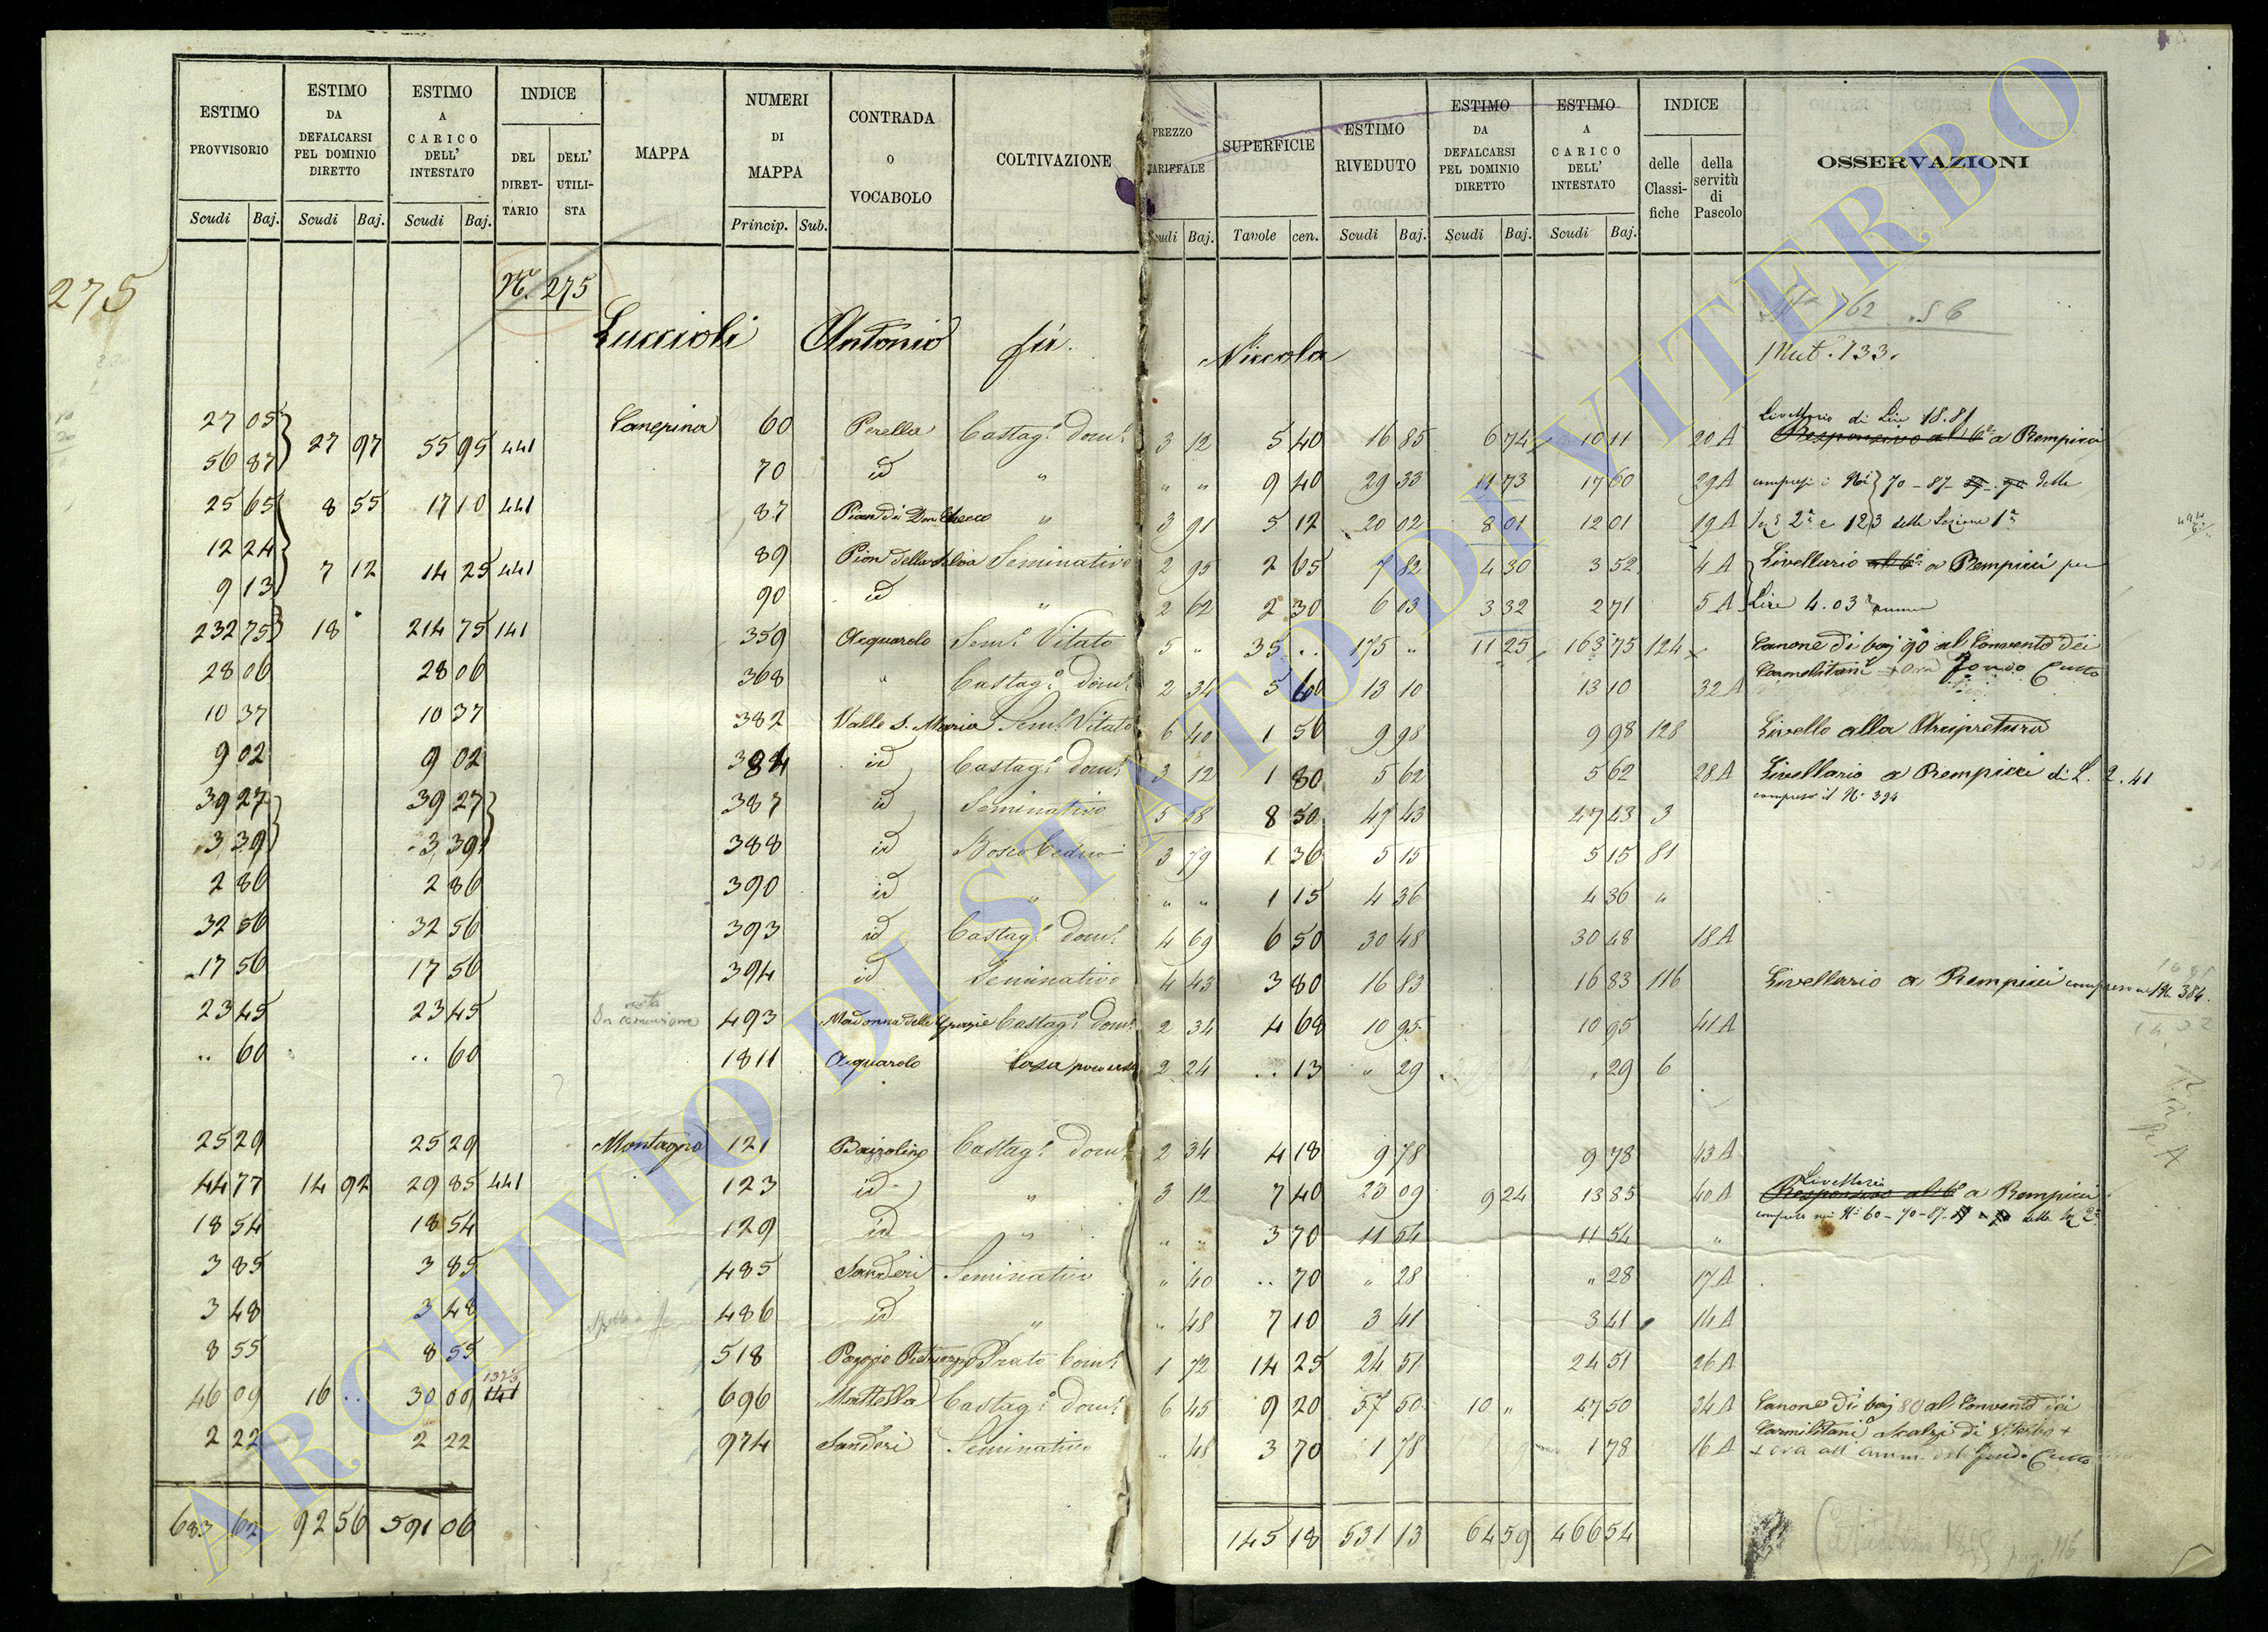 ESTIMO PROVVISORIO Scudi Baj. | ESTIMO DA DEFALCARSI PEL DOMINIO DIRETTO Scudi Baj. | ESTIMO A CARICO DELL' INTESTATO Scudi Baj. | INDICE DEL DIRET-TARIO DELL' UTILI-STA | MAPPA | NUMERI DI MAPPA Princip. Sub. | CONTRADA O VOCABOLO | COLTIVAZIONE | PREZZO TARIFFALE Scudi Baj. | SUPERFICIE Tavole cen. | ESTIMO RIVEDUTO Scudi Baj. | ESTIMO DA DEFALCARSI PEL DOMINIO DIRETTO Scudi Baj. | ESTIMO A CARICO DELL' INTESTATO Scudi Baj. | INDICE delle Classi-fiche della servitù di Pascolo | OSSERVAZIONI
275
N. 275
762 56
Luccioli Antonio fu Niccola
Mut. 133.
27 05 Canepina 60 Perella Castag. Dom. 3 12 5 40 16 85 6 74 10 11 20 A Livellario di Lire 18.81 Responsivo al 6 a Rempicci
27 97 55 95 441
56 87 70 id " " " 9 40 29 33 11 73 17 60 29 A compresi i Ni 70 - 87 delle
25 65 8 55 17 10 441 87 Pian di Don Checco " 3 91 5 12 20 02 8 01 12 01 19 A 2a e 123 della Sezione 1a
12 24 89 Pian della Salvia Seminativo 2 95 2 65 7 82 4 30 3 52 4 A Livellario a Rempicci per
7 12 14 25 441
9 13 90 id " 2 62 2 30 6 03 3 32 2 71 5 A Lire 4.03 annue
232 75 18 " 214 75 141 359 Acquarolo Sem. Vitato 5 " 35 .. 175 " 11 25 163 75 124 Canone di baj 90 al Convento dei
28 06 28 06 368 " Castag. Dom. 2 34 5 60 13 10 13 10 32 A Carmelitani + Ora Fondo Culto
10 37 10 37 382 Valle S. Maria Sem. Vitato 6 40 1 56 9 98 9 98 128 Livello alla Arcipretura
9 02 9 02 384 id Castag. Dom. 3 12 1 80 5 62 5 62 28 A Livellario a Rempicci di L. 2.41
compreso il N. 394
39 27 39 27 387 id Seminativo 5 58 8 50 47 43 47 43 3
3 39 3 39 388 id Bosco Ceduo 3 79 1 36 5 15 5 15 81
2 86 2 86 390 id " " " 1 15 4 36 4 36 "
32 56 32 56 393 id Castag. Dom. 4 69 6 50 30 48 30 48 18 A
17 56 17 56 394 id Seminativo 4 43 3 80 16 83 16 83 116 Livellario a Rempicci compreso nel N 384.
23 45 23 45 493 Madonna delle Grazie Castag. Dom. 2 34 4 68 10 95 10 95 41 A
.. 60 .. 60 1811 Acquarolo Casa 2 24 .. 13 " 29 " 29 6
25 29 25 29 Montagna 121 Castag. Dom. 2 34 4 18 9 78 9 78 43 A
44 77 14 92 29 85 441 123 id " 3 12 7 40 23 09 9 24 13 85 40 A Livellario Responsivo al 6 a Rempicci
18 54 18 54 129 id " " " 3 70 11 54 11 54 " compreso nei Ni 60 - 70 - 87
3 85 3 85 485 Sanderi Seminativo " 40 .. 70 " 28 " 28 17 A
3 48 3 48 486 id " " 48 7 10 3 41 3 41 14 A
8 55 8 55 518 Poggio Prato 1 72 14 25 24 51 24 51 26 A
1373
46 09 16 .. 30 09 141 696 Mattella Castag. Dom. 6 45 9 20 57 50 10 " 47 50 34 A Canone di baj 80 al Convento dei
Carmelitani Scalzi di Viterbo +
2 22 2 22 974 Sanderi Seminativo " 48 3 70 1 78 1 78 16 A + Ora all' Amm. del Fondo Culto
683 62 92 56 591 06 145 18 531 13 64 59 466 54
pag. 116
ARCHIVIO DI STATO DI VITERBO